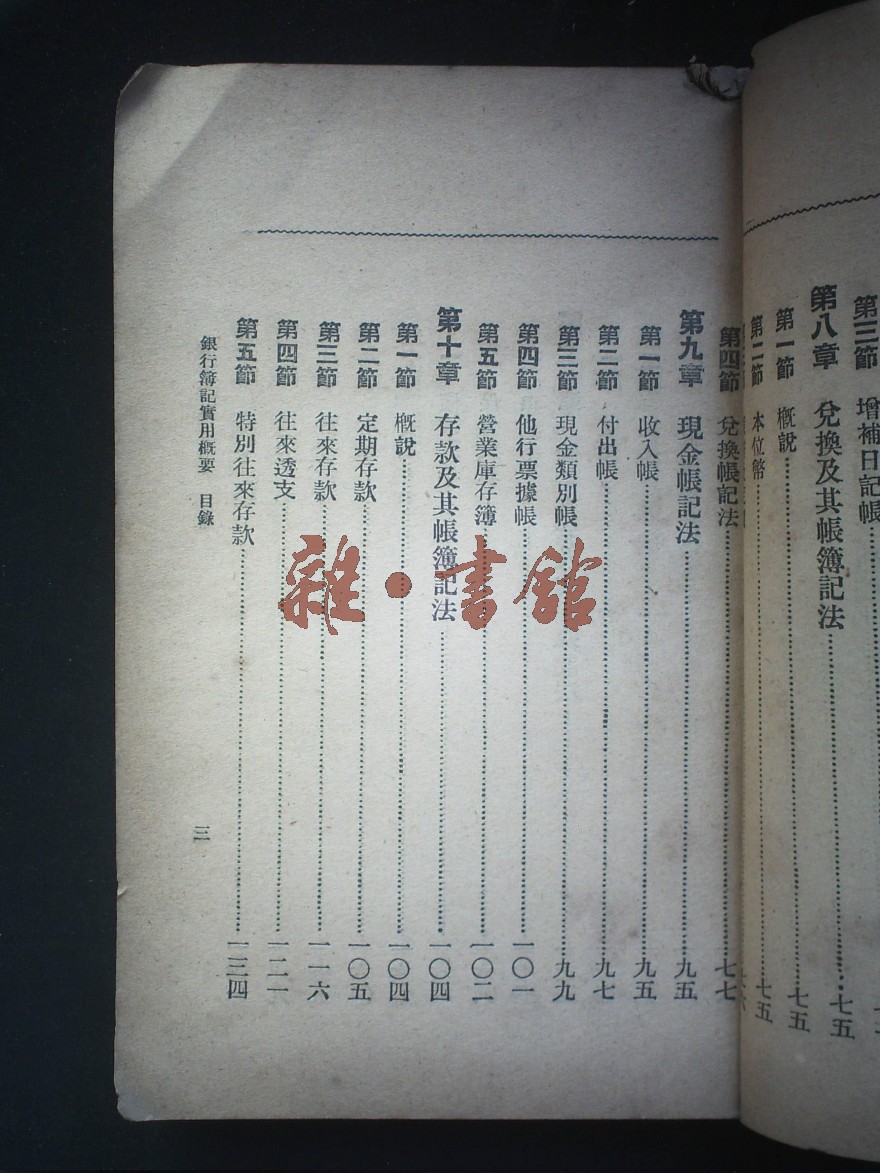 第三節 增補日記帳
第八章 兌換及其帳簿記法……七五
第一節 概説……七五
第二節 本位幣……七五
第四節 兌換帳記法……七七
第九章 現金帳記法……九五
第一節 收入帳……九五
第二節 付出帳……九七
第三節 現金類別帳……九九
第四節 他行票據帳……一〇一
第五節 營業庫存簿……一〇二
第十章 存款及其帳簿記法……一〇四
第一節 概説……一〇四
第二節 定期存款……一〇五
第三節 往來存款……一一六
第四節 往來透支……一二一
第五節 特別往來存款……一三四
銀行簿記實用概要 目錄 三
雜·書館